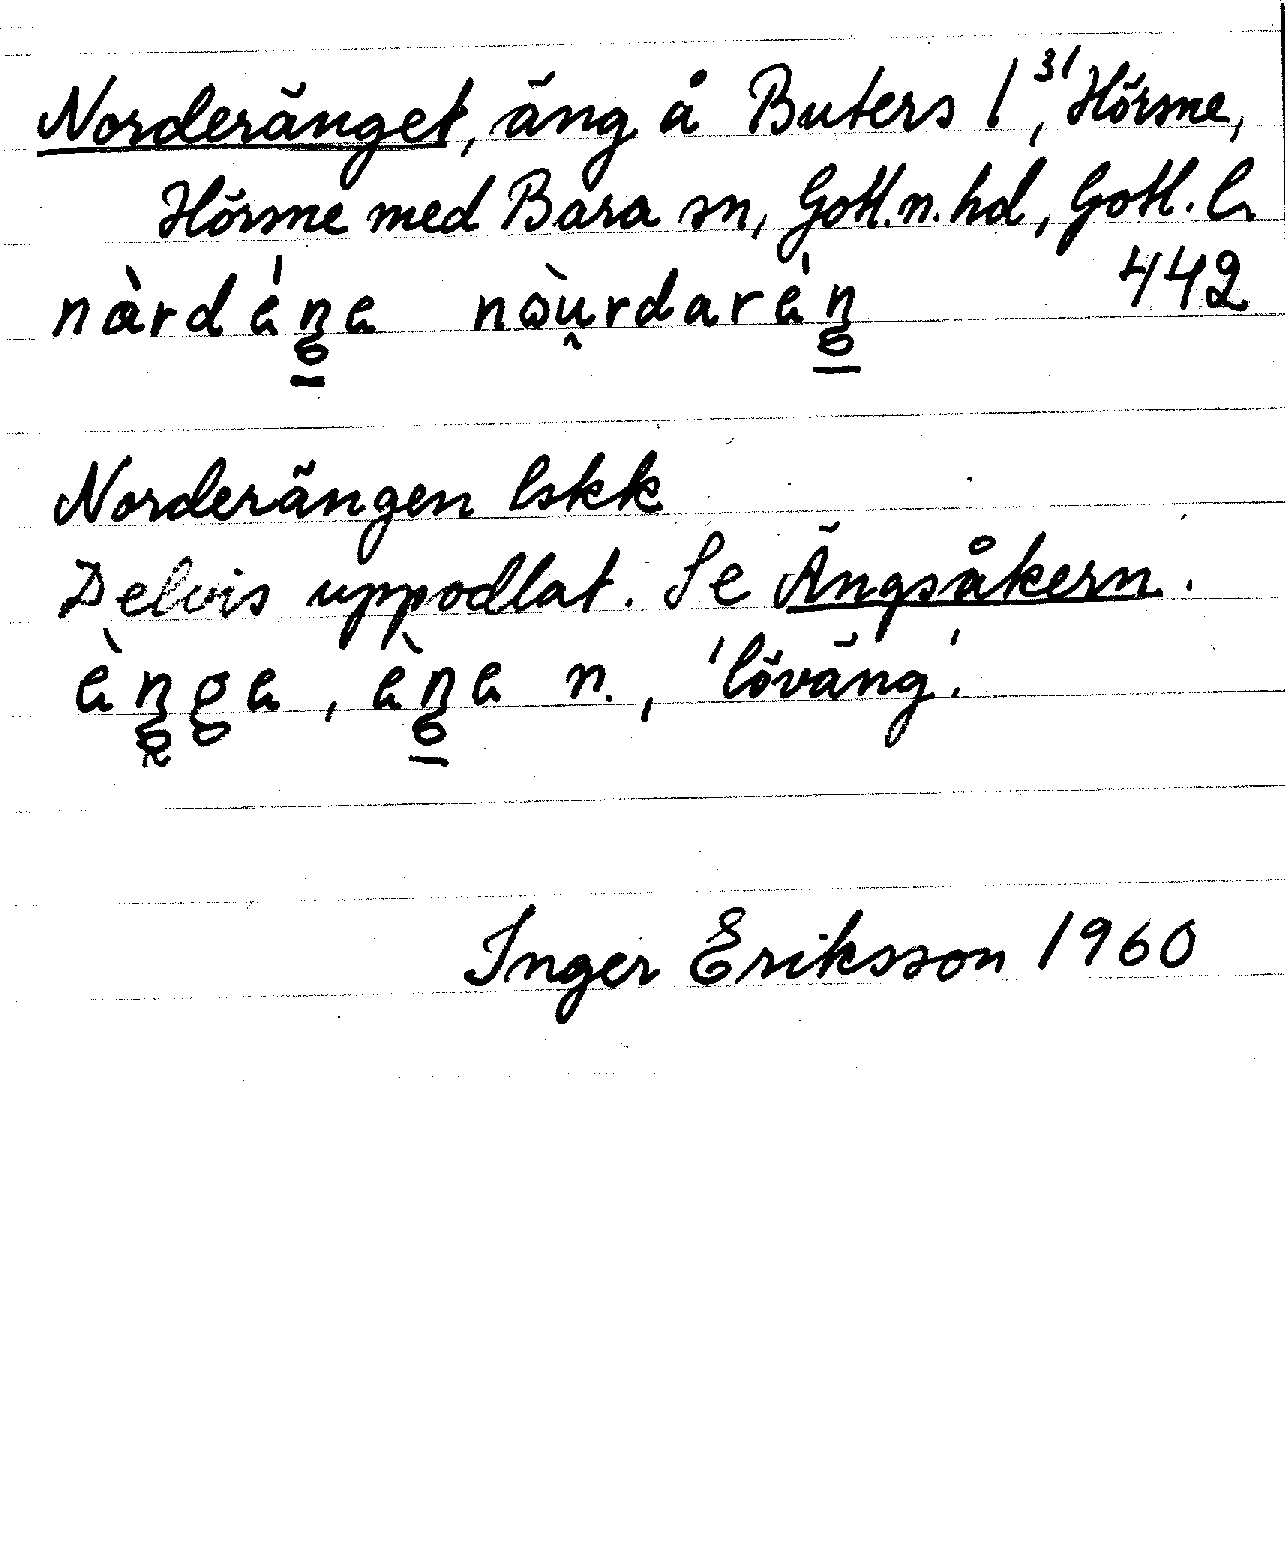 Norderänget, äng å Buters 1³¹, Hörsne,
Hörsne med Bara sn, Gotl. n. hd, Gotl. l.
442
Norderängen lskk
Delvis uppodlat. Se Ängsåkern.
n., 'löväng'.
Inger Eriksson 1960